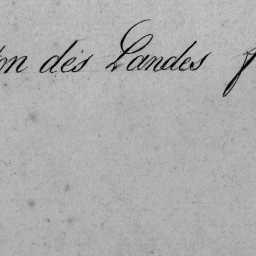 des Landes